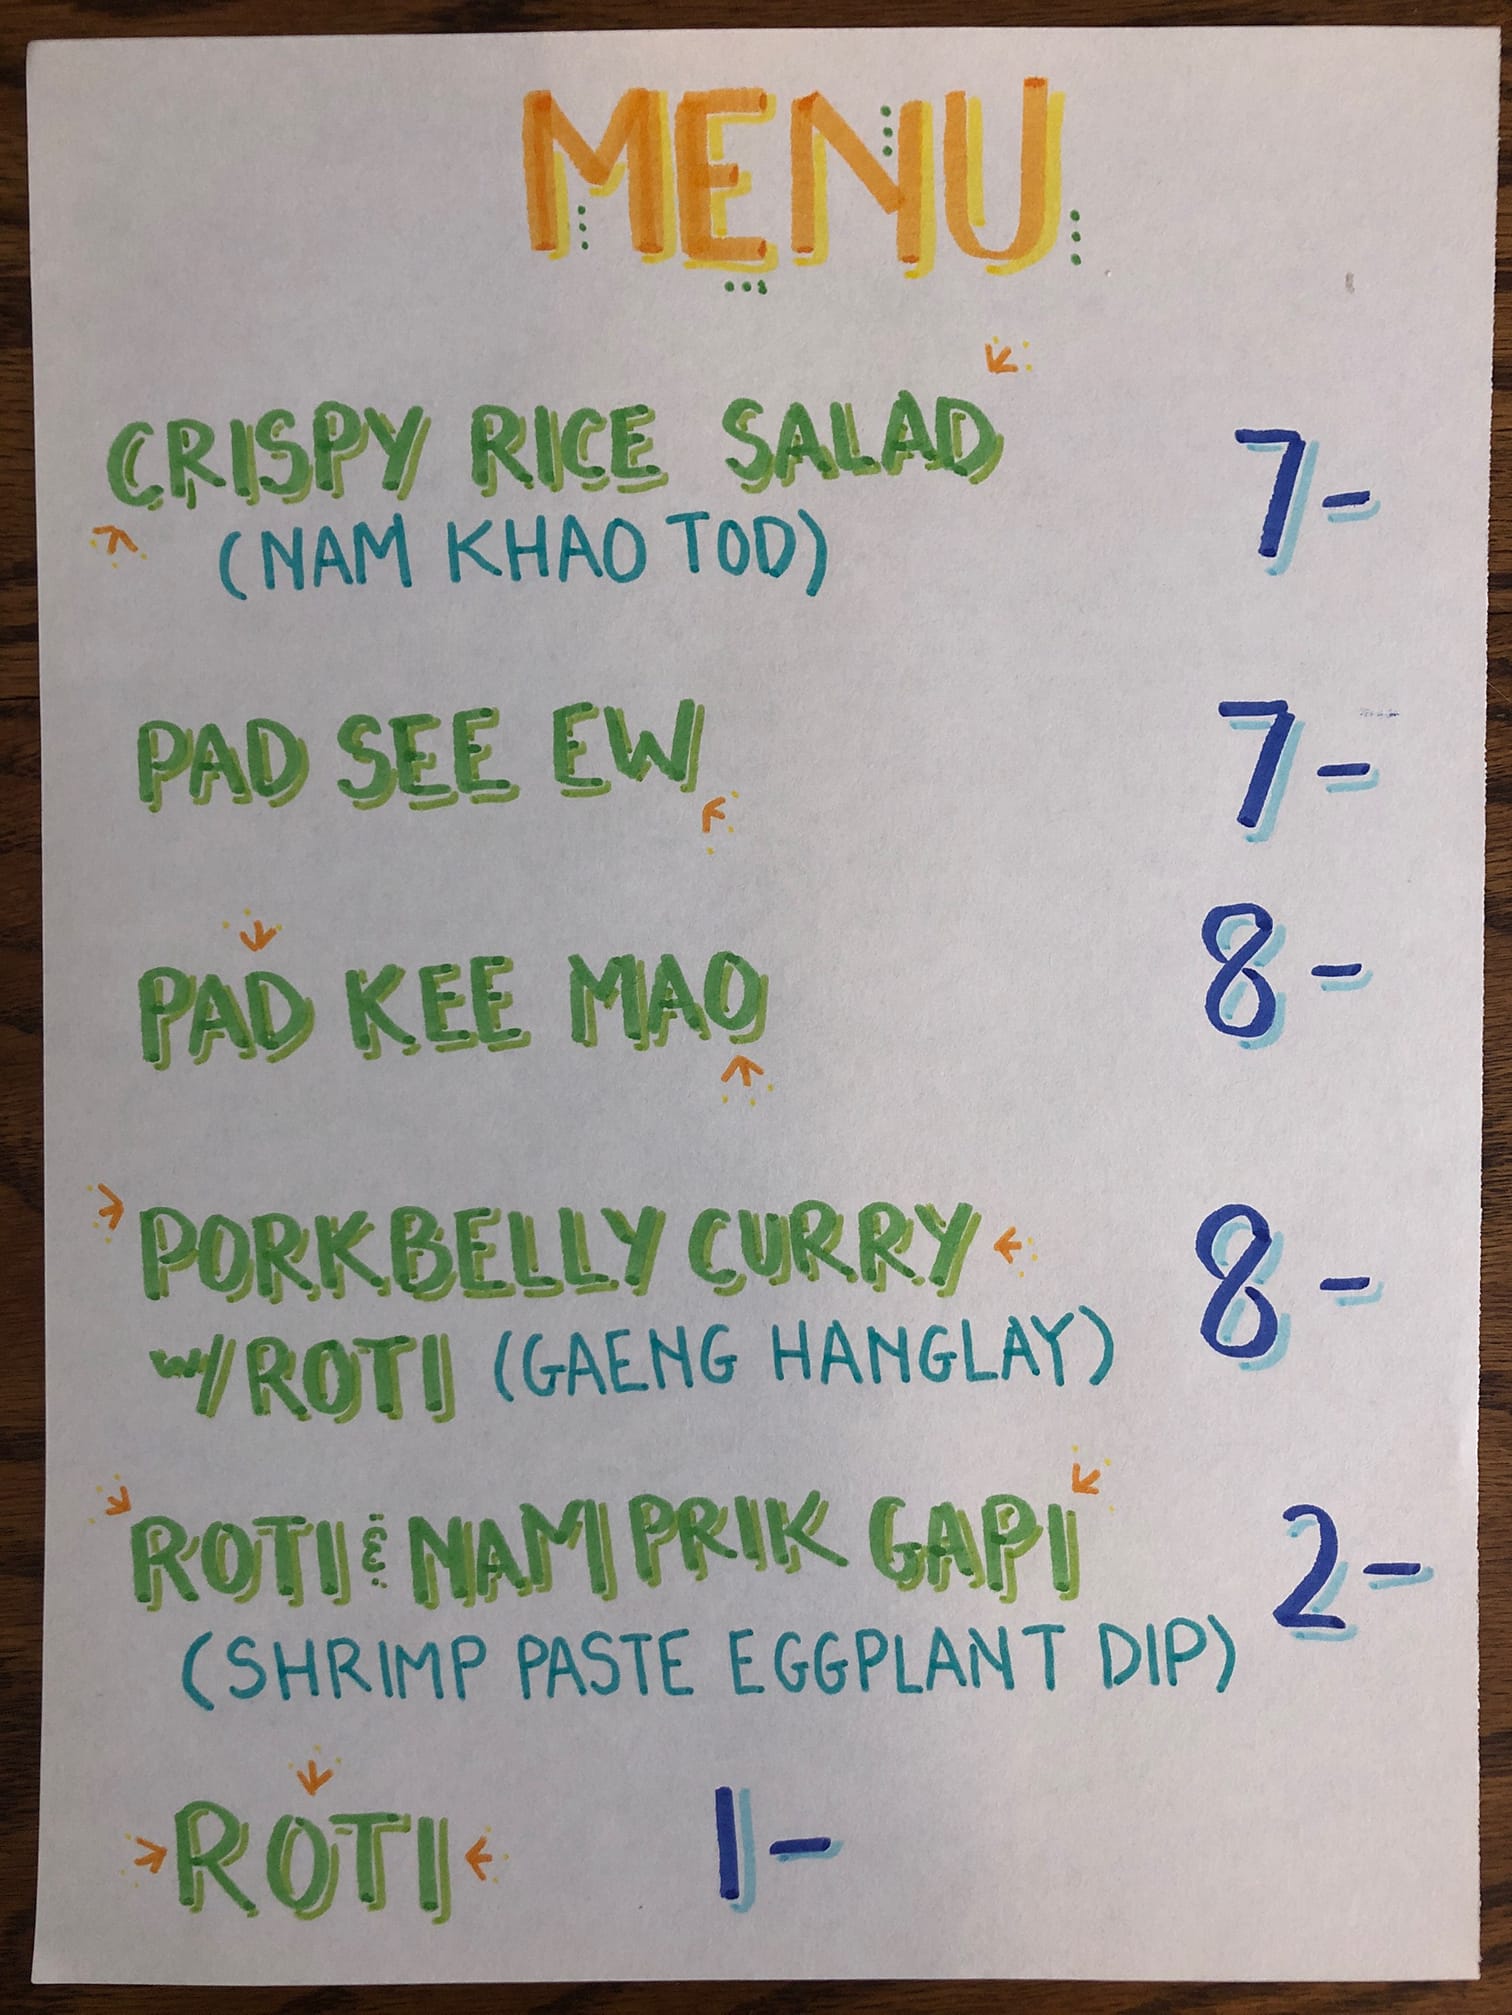 MENU
CRISPY RICE SALAD 7-
(NAM KHAO TOD)
PAD SEE EW 7-
PAD KEE MAO 8-
PORKBELLY CURRY 8-
W/ ROTI (GAENG HANGLAY)
ROTI & NAM PRIK GAPI 2-
(SHRIMP PASTE EGGPLANT DIP)
ROTI 1-